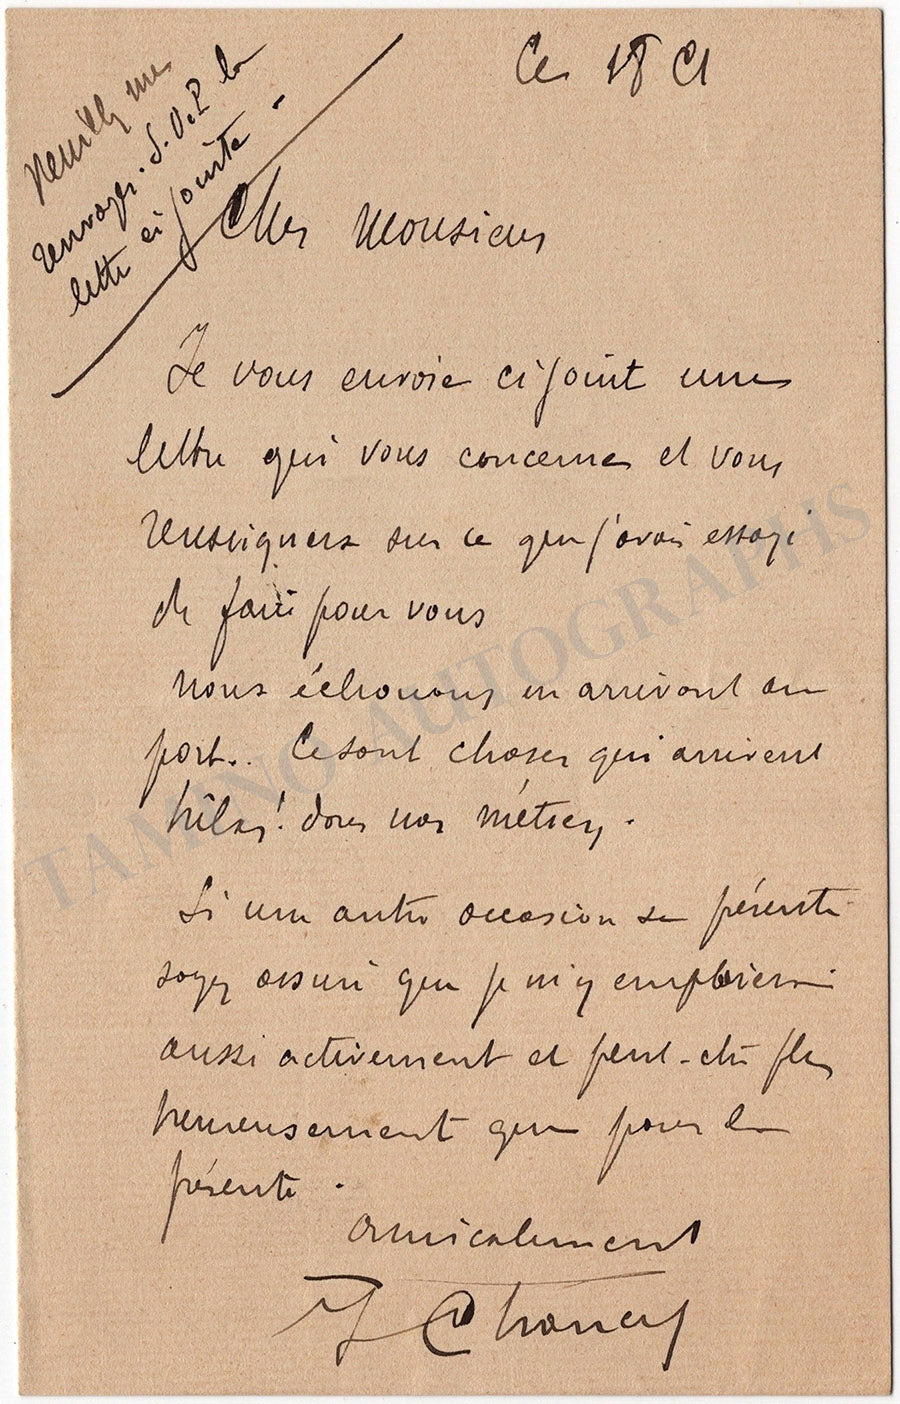 Ce 18 
Veuillez me
renvoyer. S.V.P la
lettre ci jointe.
Cher Monsieur
Je vous envoie ci joint une
lettre qui vous concerne et vous
renseignera sur ce que j'avais essayé
de faire pour vous
nous échouons en arrivant au
port.. Ce sont choses qui arrivent
hélas! dans nos métiers.
Si une autre occasion se présente
soyez assuré que je m'y emploierai
aussi activement et peut-être plus
heureusement que pour la
présente.
amicalement
TAMINO AUTOGRAPHS